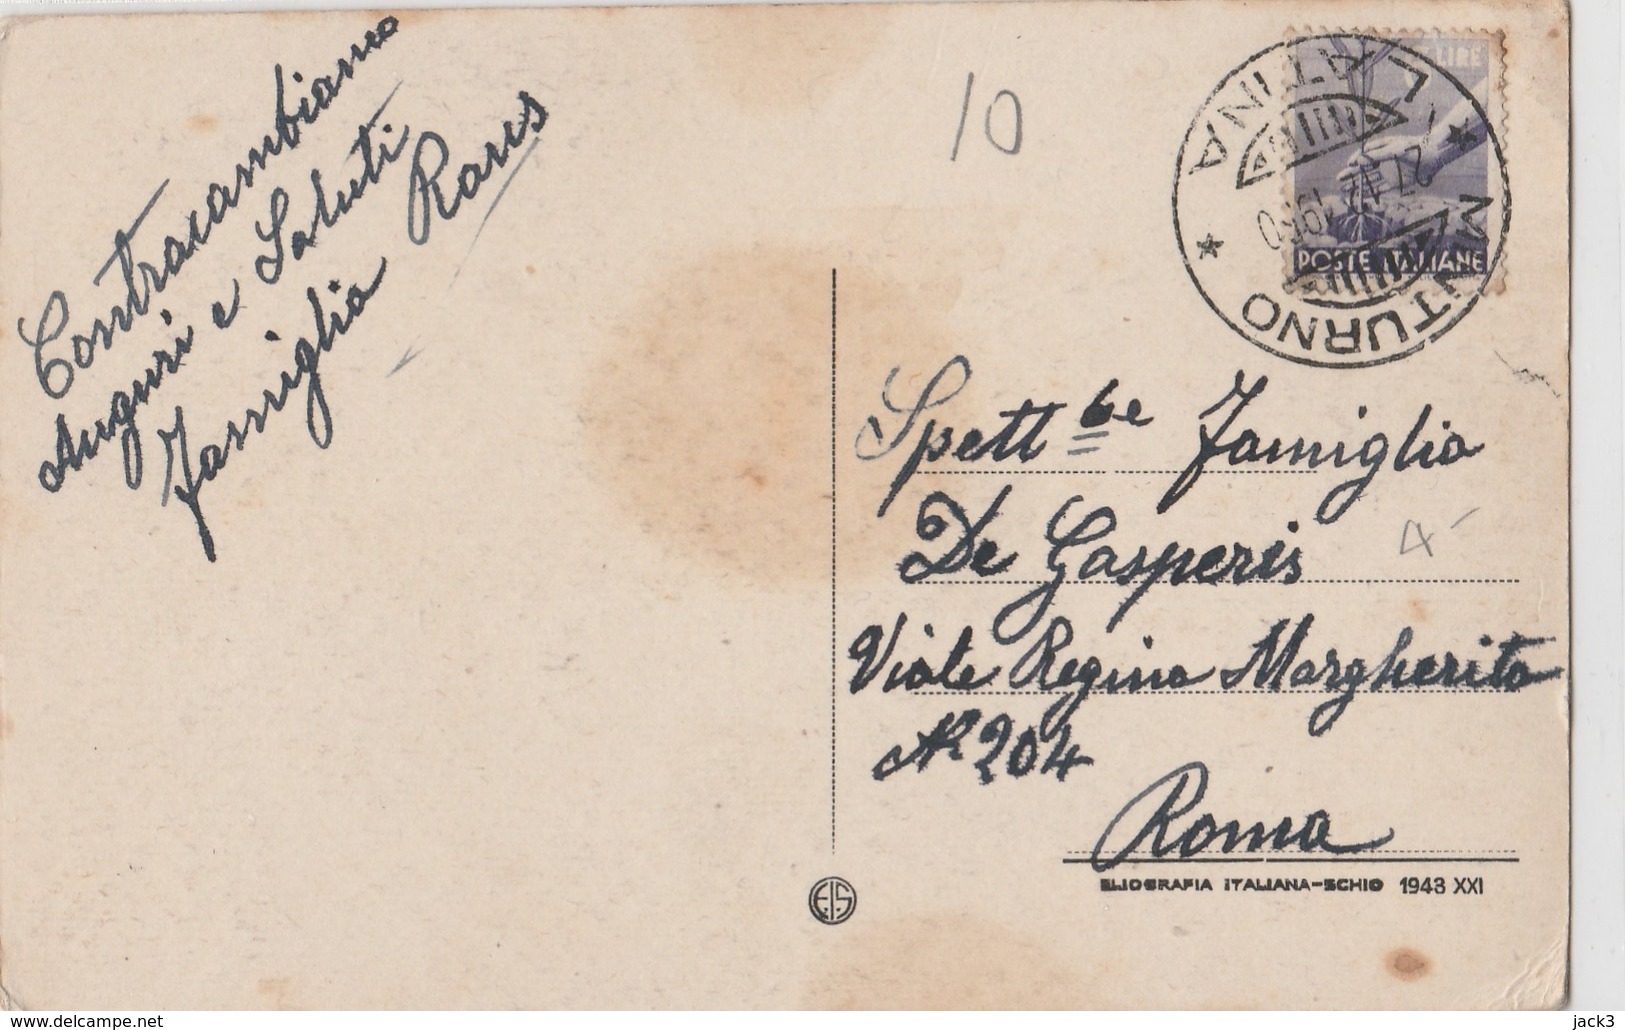 Contracambiamo
Auguri e Saluti
Famiglia Rarus
10
LIRE
POSTE ITALIANE
MINTURNO * LATINA *
27 12 19 0
Spett be Famiglia
De Gasperis
4-
Viale Regina Margherita
N 204
Roma
ELIOGRAFIA ITALIANA-SCHIO 1943 XXI
E.I.S
www.delcampe.net
jack3